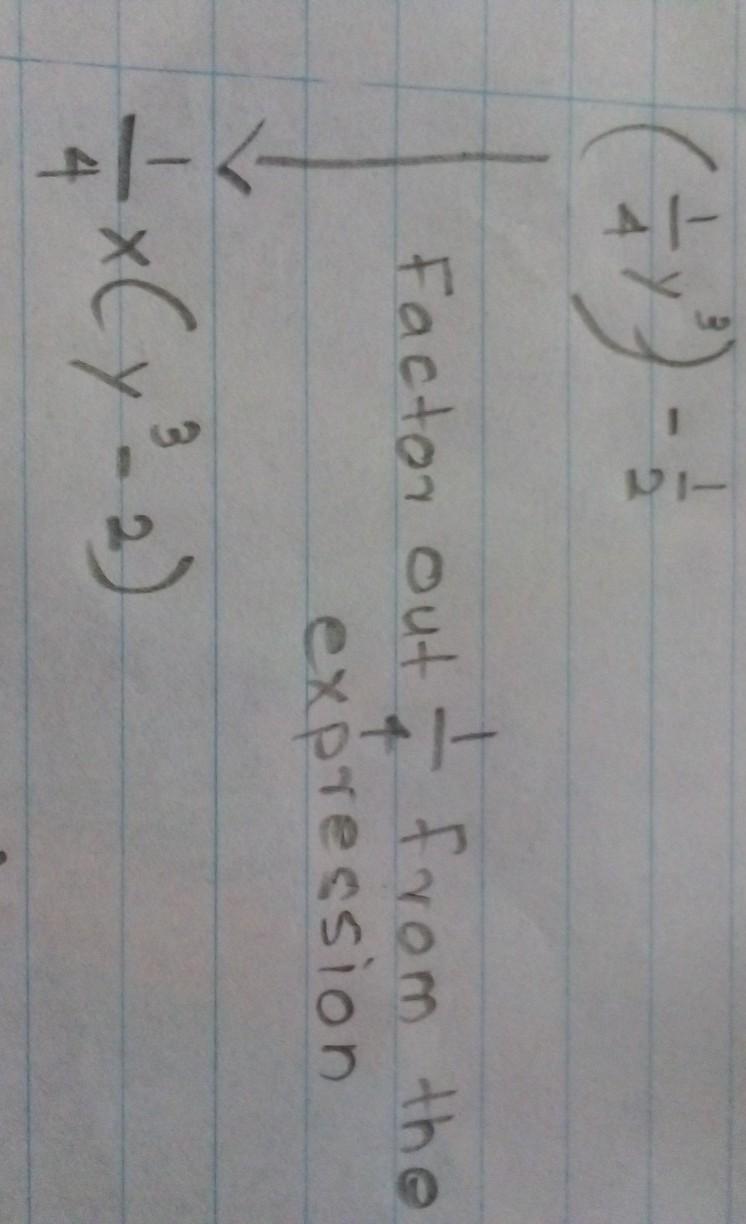 (1/4 y³) - 1/2
Factor out 1/4 from the
expression
1/4 × (y³ - 2)